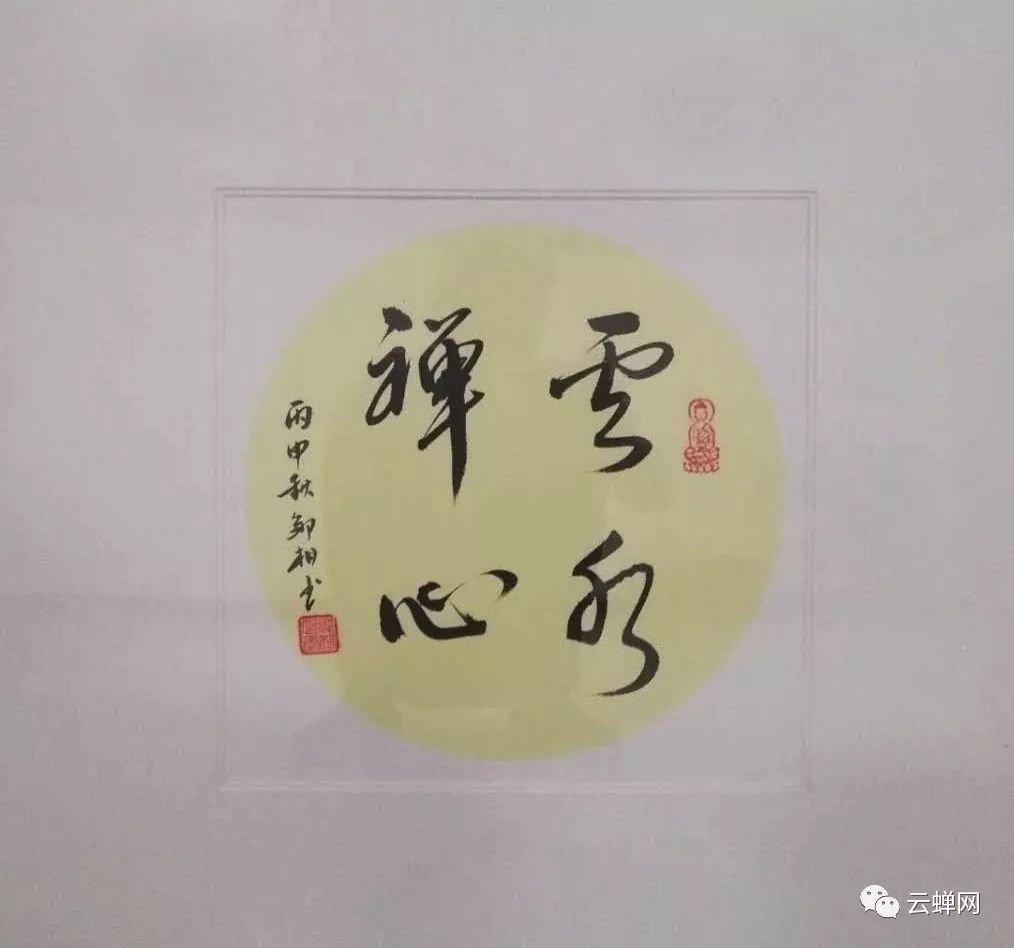 雲水
禪心
丙申秋邹相书
云蝉网